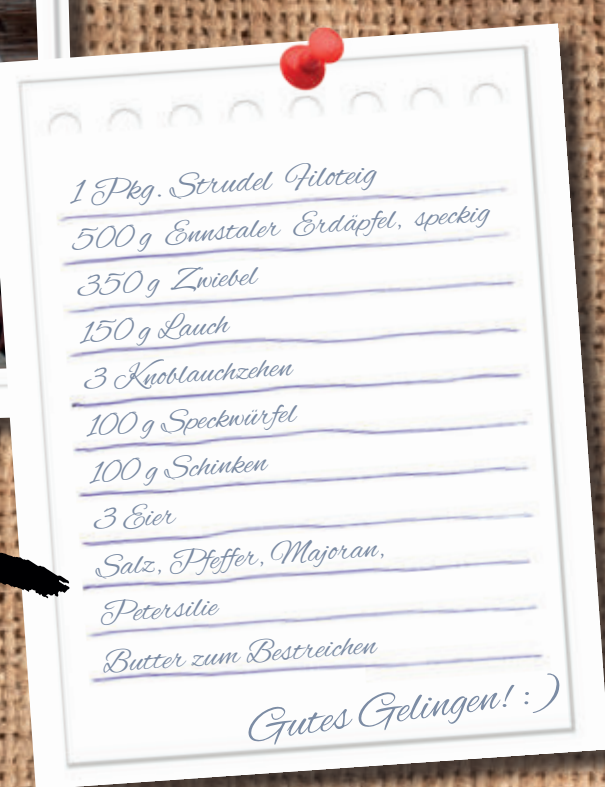 1 Pkg. Strudel Filoteig
500 g Ennstaler Erdäpfel, speckig
350 g Zwiebel
150 g Lauch
3 Knoblauchzehen
100 g Speckwürfel
100 g Schinken
3 Eier
Salz, Pfeffer, Majoran,
Petersilie
Butter zum Bestreichen
Gutes Gelingen! : )